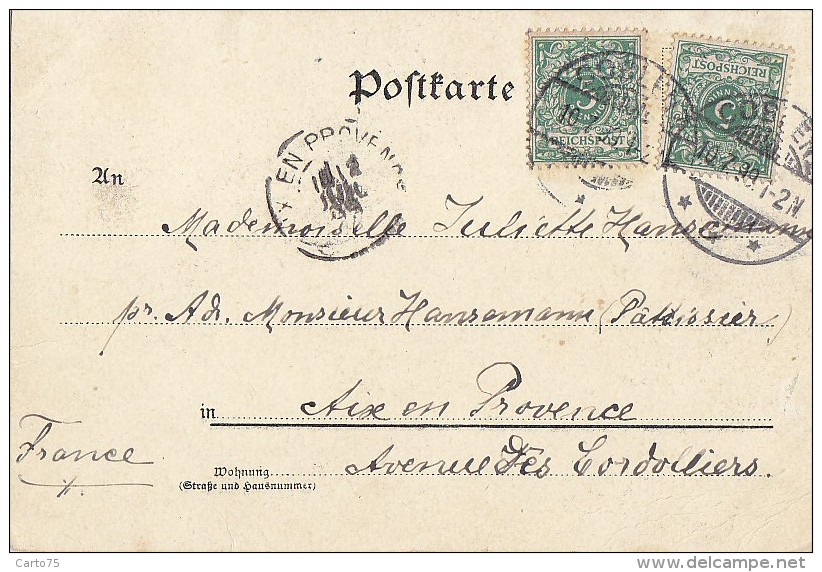 Postkarte
5
REICHSPOST
5
REICHSPOST
EN PROVENCE
An
Mademoiselle Juliette Hansemann
pr. Ad. Monsieur Hansemann (Patissier)
in Aix en Provence
France
Wohnung
Avenue Des Cordolliers.
(Straße und Hausnummer)
Carto75
delcampe.net